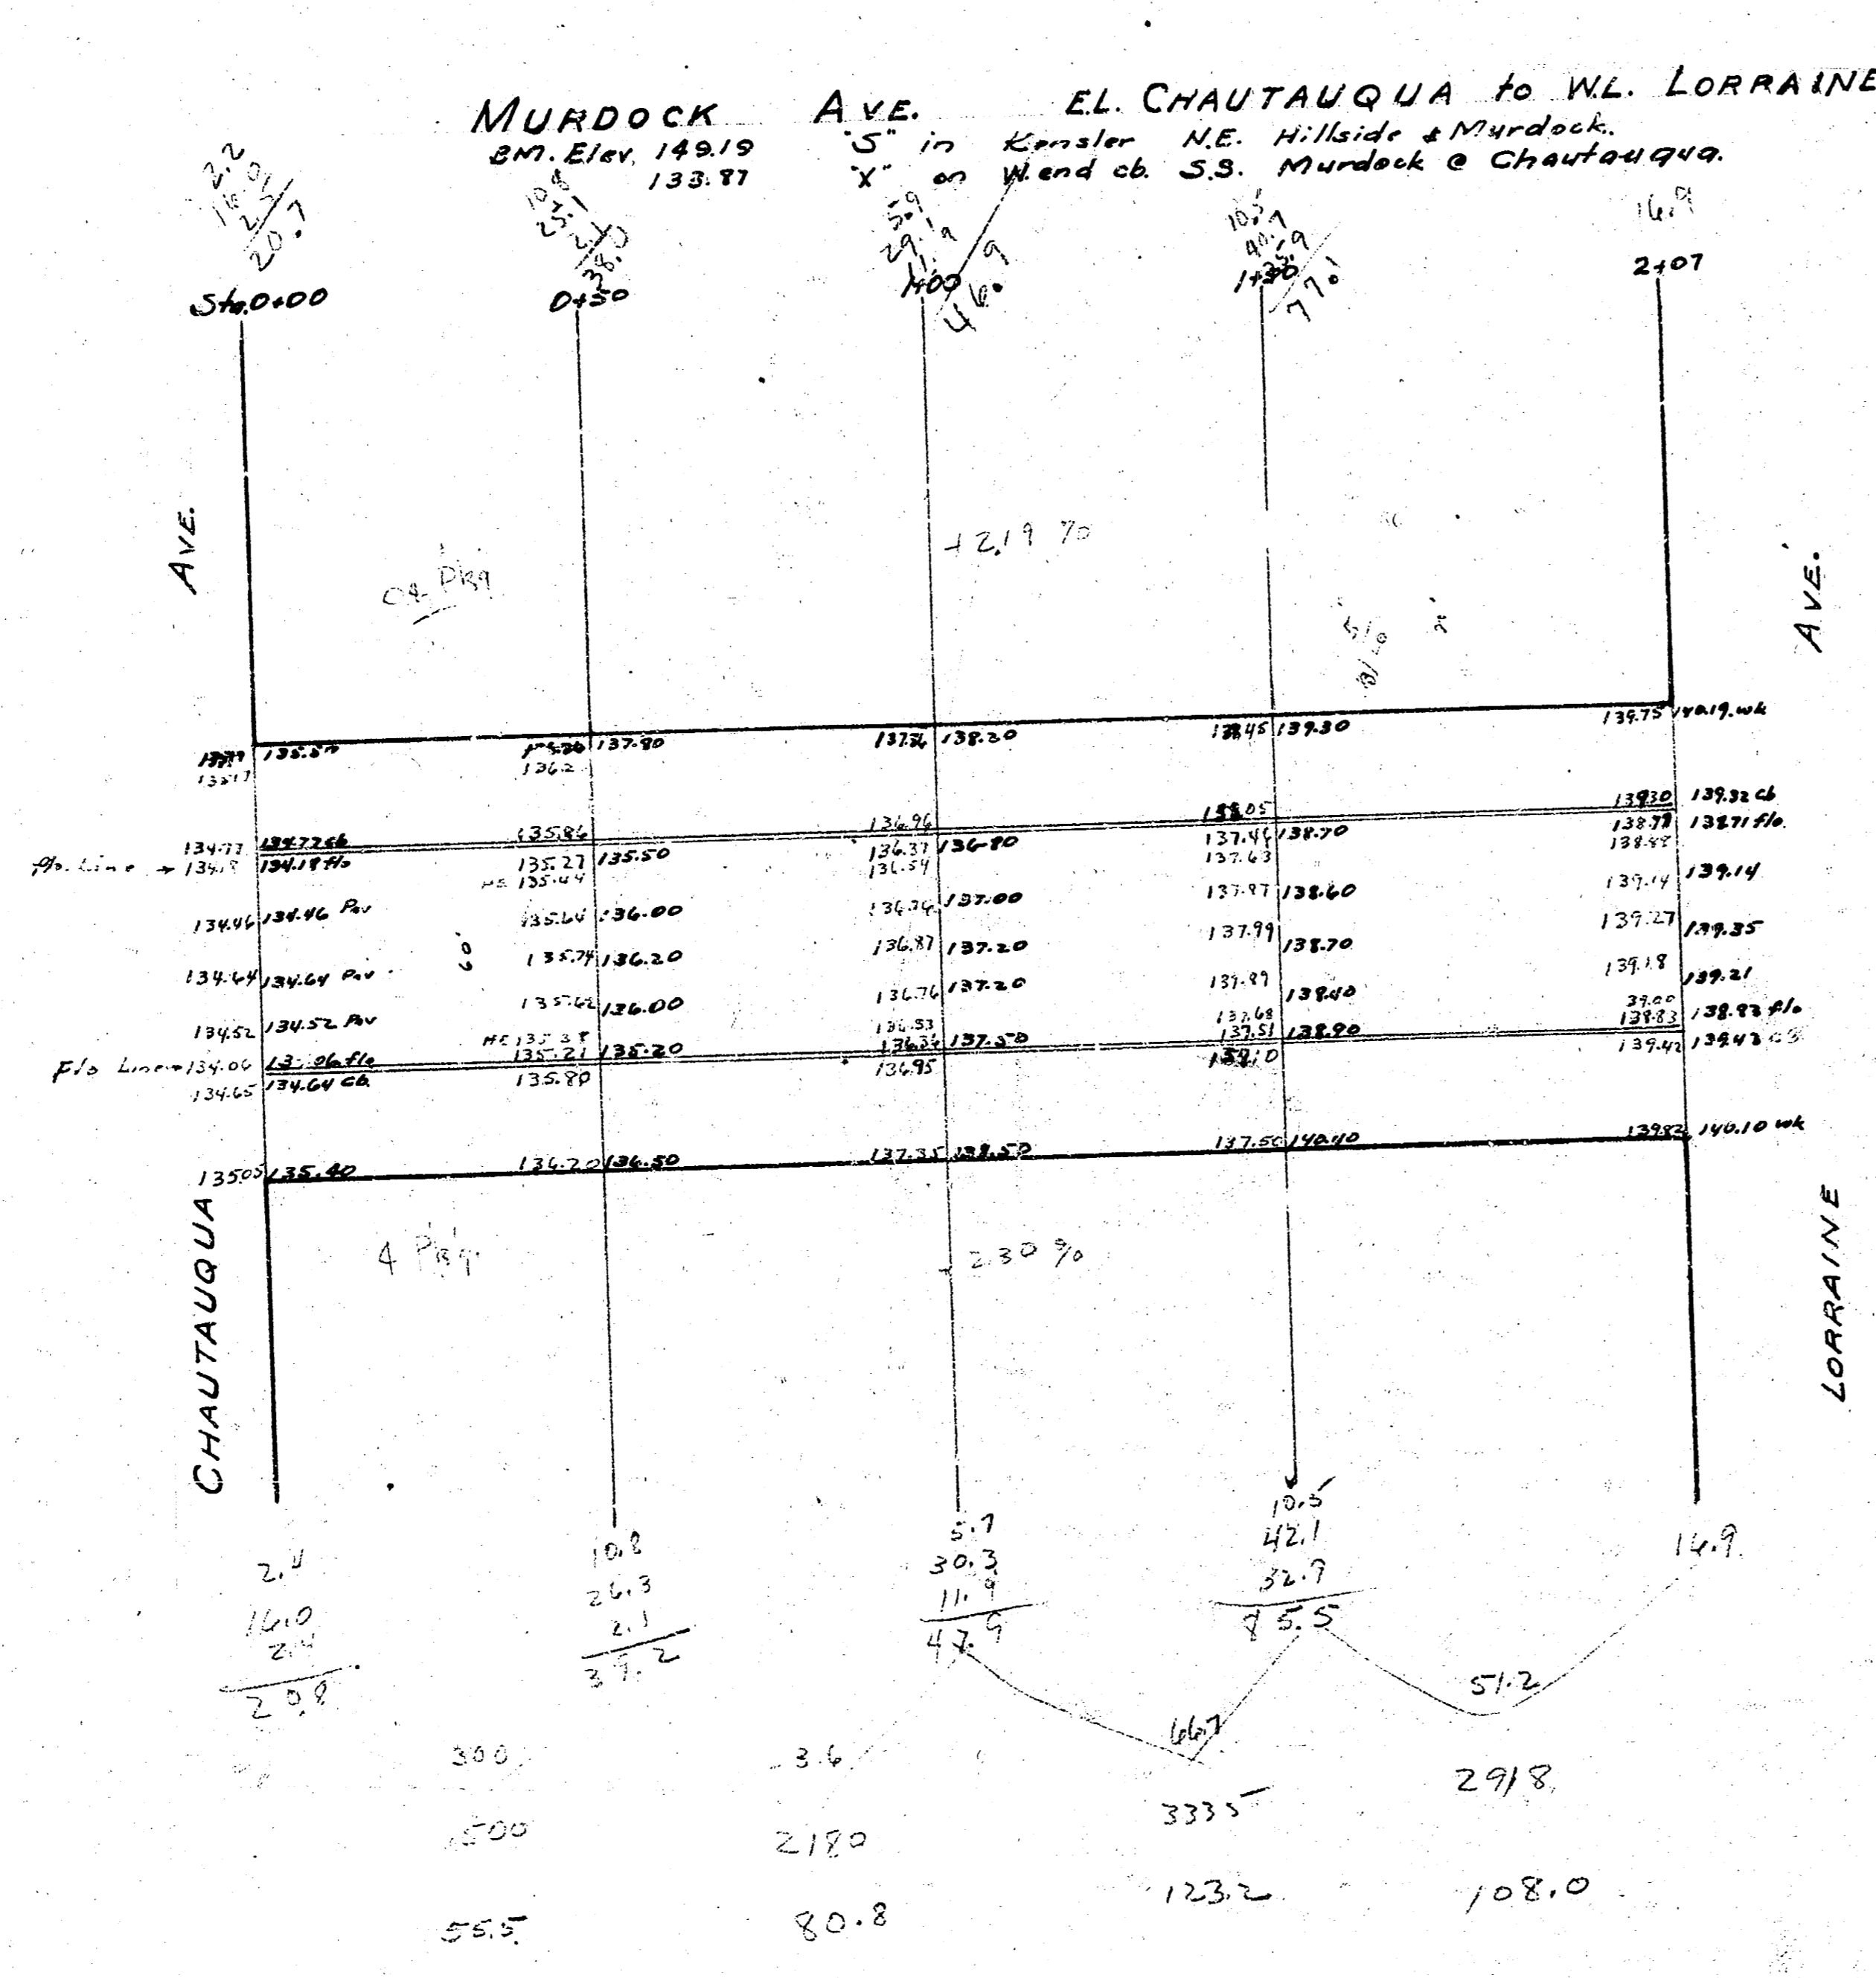 MURDOCK AVE. E.L. CHAUTAUQUA to W.L. LORRAINE
BM. Elev. 149.19 "S" in Kensler N.E. Hillside & Murdock.
133.87 "X" on W. end cb. S.S. Murdock @ Chautauqua.
2.2
16.0
2.5
20.7
10.8
25.1
2.1
38.0
5.9
29.1
11.9
46.9
10.5
40.7
25.9
77.1
16.9
Sta. 0+00 0+50 1+00 1+50 2+07
AVE. AVE.
+2.19 %
135.57 137.80 137.36 138.20 138.45 139.30 139.75 140.19 wk
135.17 136.2
134.77 134.77 cb 135.86 136.96 138.05 139.30 139.32 cb
flo. Line → 134.18 134.18 flo 135.27 135.50 136.37 136.80 137.46 138.70 138.71 138.71 flo.
135.44 136.54 137.63 138.88
134.46 134.46 Pav 135.64 136.00 136.76 137.00 137.87 138.60 139.14 139.14
60'
134.64 134.64 Pav 135.74 136.20 136.87 137.20 137.99 138.70 139.27 139.35
134.52 134.52 Pav 135.62 136.00 136.76 137.20 137.89 138.40 139.18 139.21
135.38 136.53 137.68 39.00
Flo Line → 134.06 134.06 flo 135.21 135.20 136.36 137.50 137.51 138.90 138.83 138.83 flo
134.65 134.64 cb. 135.80 136.95 138.10 139.42 139.42 CB
135.05 135.40 136.20 136.50 137.35 138.50 137.50 140.40 139.82 140.10 wk
CHAUTAUQUA LORRAINE
2.30 %
2.4
16.0
2.4
20.8
10.8
26.3
2.1
39.2
5.7
30.3
11.9
47.9
10.5
42.1
32.9
85.5
16.9
66.7 51.2
300 3.6
3335 2918
1500 2180
123.2 108.0
55.5 80.8